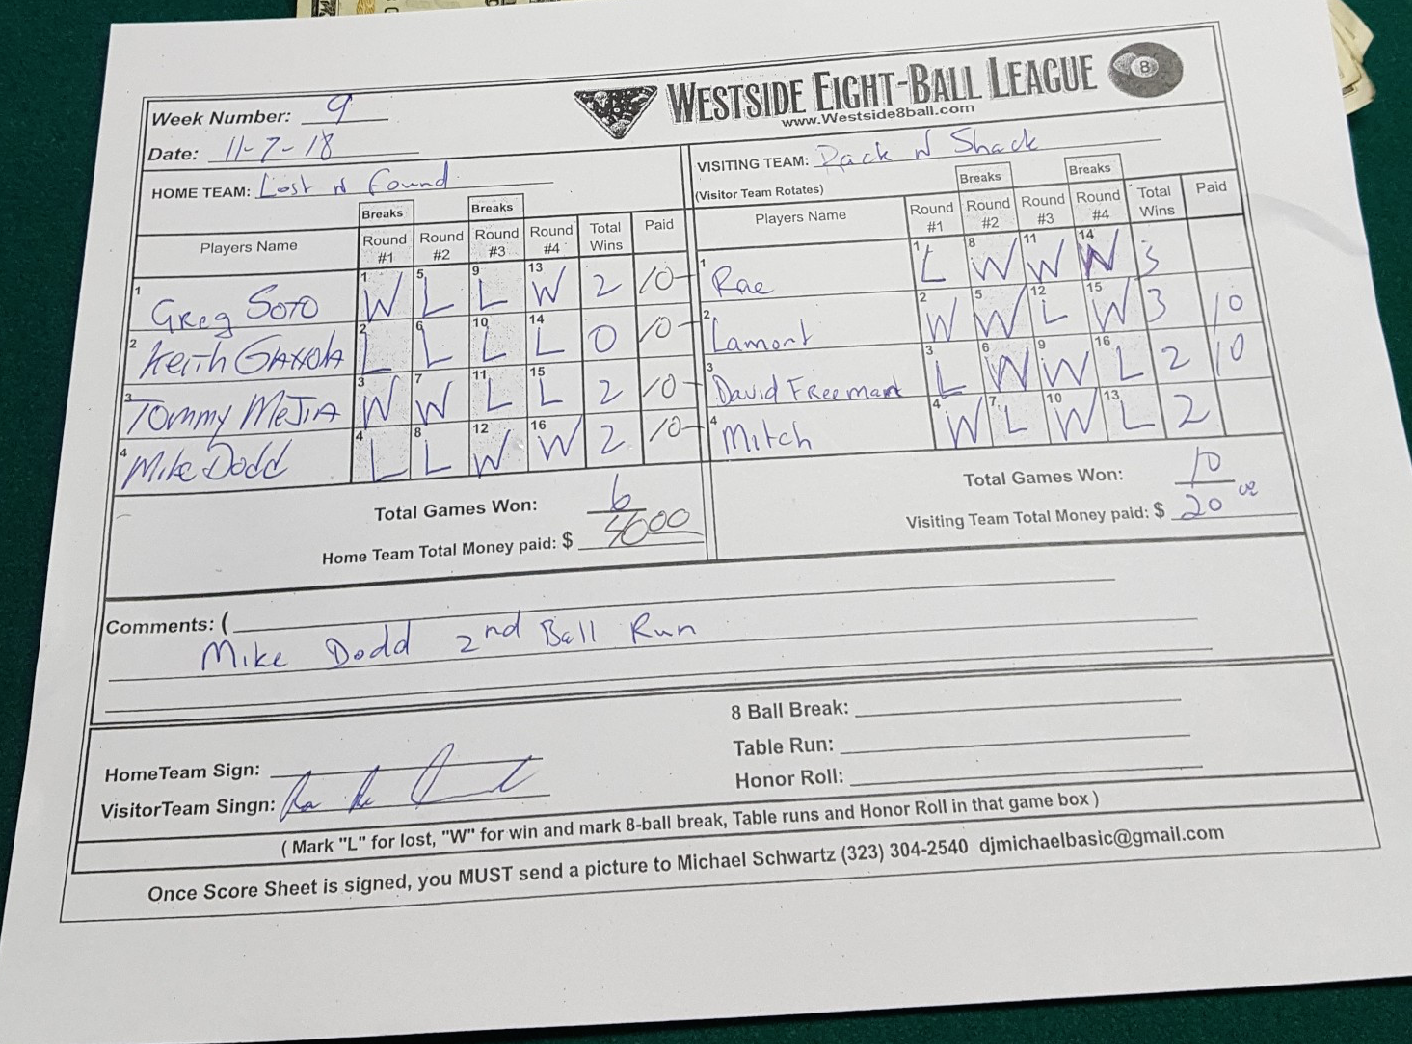 Week Number: 9
WESTSIDE EIGHT-BALL LEAGUE 8
www.Westside8ball.com
Date: 11-7-18
HOME TEAM: Lost N Found
VISITING TEAM: Rack N Shack
(Visitor Team Rotates)
Breaks Breaks
Players Name Round #1 Round #2 Round #3 Round #4 Total Wins Paid
1 Greg Soto 1 W 5 L 9 L 13 W 2 10-
2 Keith 2 L 6 L 10 L 14 L 0 10-
3 Tommy MeJIA 3 W 7 W 11 L 15 L 2 10-
4 Mike Dodd 4 L 8 L 12 W 16 W 2 10-
Total Games Won: 6
Home Team Total Money paid: $ 4000
Breaks Breaks
Players Name Round #1 Round #2 Round #3 Round #4 Total Wins Paid
1 Rae 1 L 8 W 11 W 14 W 3
2 Lamont 2 W 5 W 12 L 15 W 3 10
3 David Freeman 3 L 6 W 9 W 16 L 2 10
4 Mitch 4 W 7 L 10 W 13 L 2
Total Games Won: 10
Visiting Team Total Money paid: $ 20
Comments: (
Mike Dodd 2nd Ball Run
8 Ball Break:
Table Run:
Honor Roll:
HomeTeam Sign:
VisitorTeam Singn:
( Mark "L" for lost, "W" for win and mark 8-ball break, Table runs and Honor Roll in that game box )
Once Score Sheet is signed, you MUST send a picture to Michael Schwartz (323) 304-2540 djmichaelbasic@gmail.com